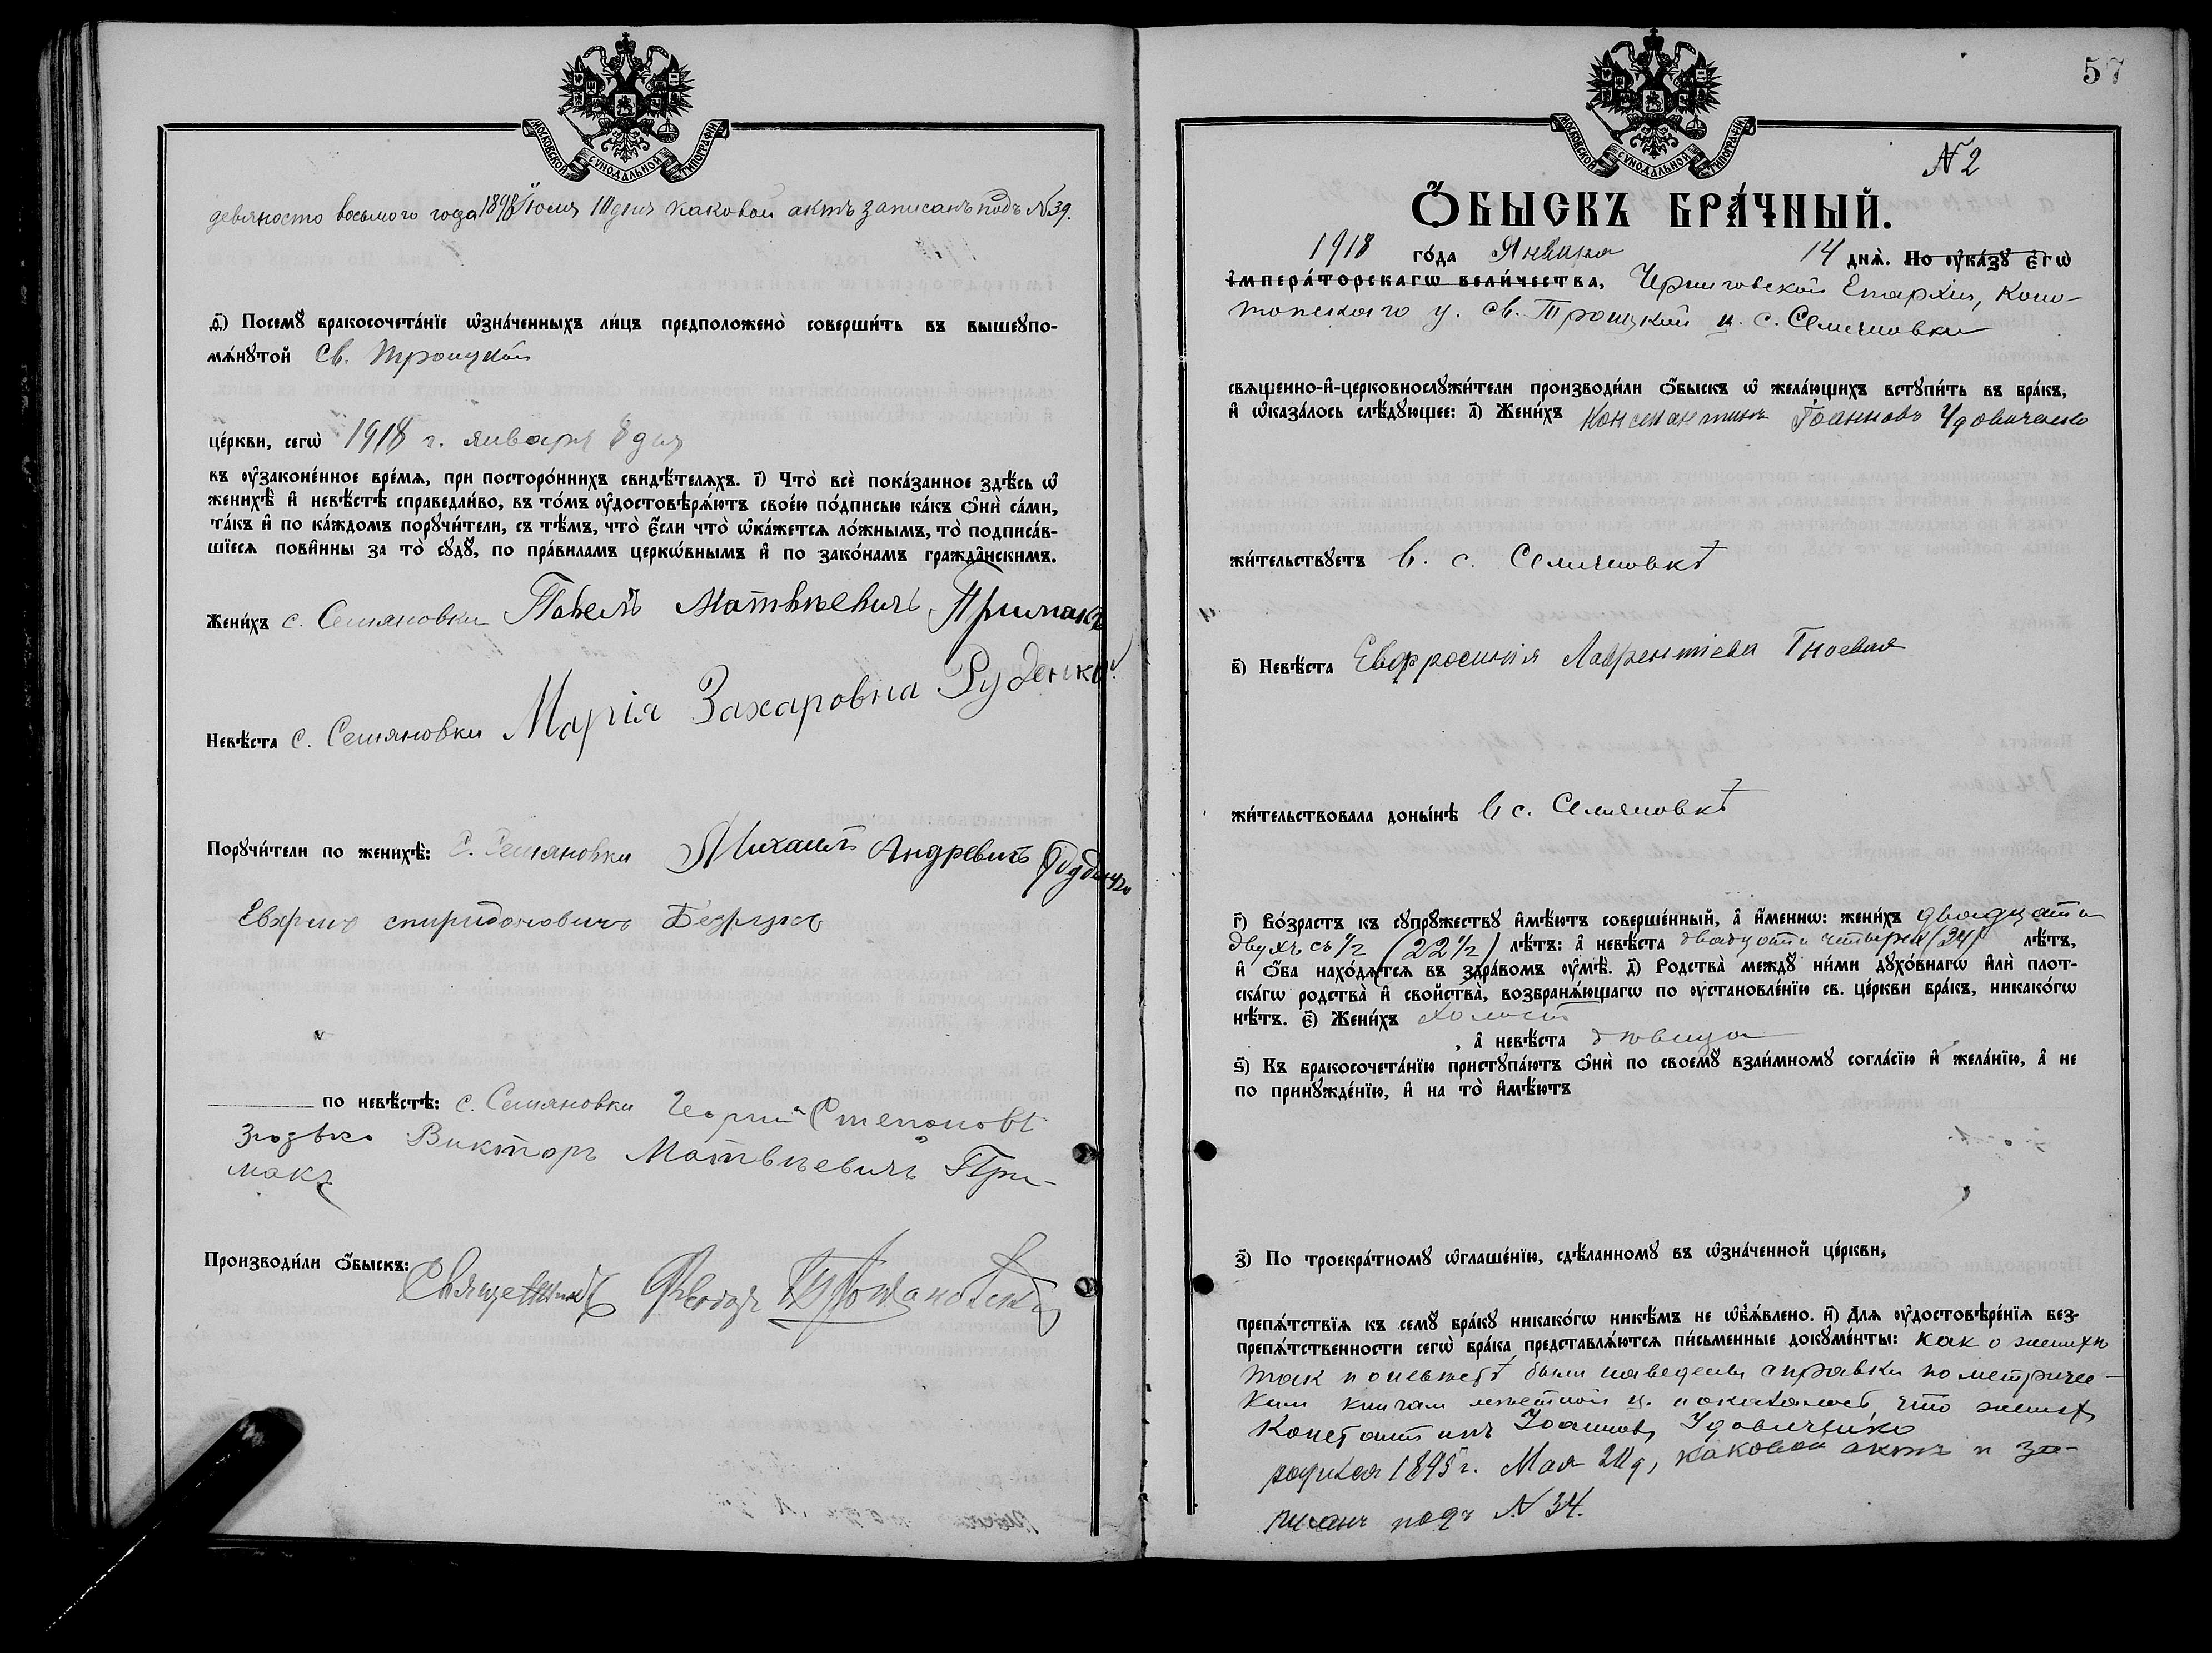 МОСКОВСКОЙ СѴНОДАЛЬНОЙ ТИПОГРАФІИ
девяносто восьмого года 1898 Іюля 10 дня каковой актъ записанъ подъ №39.
ѳ҃) Посемꙋ̀ бракосочета́нїе ѡ҆зна́ченныхъ ли́цъ предположено̀ соверши́ть въ вышеꙋпо-
мѧ́нꙋтой Св. Троицкой
це́ркви, сегѡ̀ 1918 г. января 8 дня
въ ᲂу҆законе́нное вре́мѧ, при посторо́ннихъ свидѣ́телѧхъ. і҃) Что̀ всѐ пока́занное здѣ́сь ѡ҆
женихѣ̀ и҆ невѣ́стѣ справедли́во, въ то́мъ ᲂу҆достовѣрѧ́ютъ свое́ю по́дписью ка́къ ѻ҆нѝ са́ми,
та́къ и҆ по ка́ждомъ порꙋчи́тели, съ тѣ́мъ, что̀ є҆́сли что̀ ѡ҆ка́жется ло́жнымъ, то̀ подписа́в-
шїеся пови́нны за то̀ сꙋдꙋ̀, по пра́виламъ церкѡ́внымъ и҆ по зако́намъ гражда́нскимъ.
Жени́хъ с. Семяновки Павелъ Матвѣевичъ Примакъ
Невѣ́ста с. Семяновки Марія Захаровна Руденкова
Порꙋчи́тели по женихѣ̀: С. Семяновки Михаилъ Андревичъ
спиридоновичъ Безрукъ
по невѣ́стѣ: с. Семяновки Степановъ
Викторъ Матвѣевичъ При-
макъ
Производи́ли ѻ҆́быскъ: Священникъ Ѳеодоръ
57
МОСКОВСКОЙ СѴНОДАЛЬНОЙ ТИПОГРАФІИ
№2
Ѻ҆́БЫСКЪ БРА́ЧНЫЙ.
1918 го́да Января 14 днѧ̀. По ᲂу҆ка́зꙋ є҆гѡ̀
і҆мпера́торскагѡ вели́чества, Черниговской Епархіи, Коно-
топскаго у. Св. Троицкой ц. с. Семяновки
свѧщенно-и҆-церковнослꙋжи́тели производи́ли ѻ҆́быскъ ѡ҆ жела́ющихъ встꙋпи́ть въ бра́къ,
и҆ ѡ҆каза́лось слѣ́дꙋющее: а҃) Жени́хъ Константинъ Іоанновъ Удовиченко
жи́тельствꙋетъ в. с. Семяновкѣ
в҃) Невѣ́ста Евфросинія Лаврентіева Гноевая
жи́тельствовала доны́нѣ въ с. Семяновкѣ
г҃) Во́зрастъ къ сꙋпрꙋ́жествꙋ и҆мѣ́ютъ соверше́нный, а҆ и҆́менно: жени́хъ двадцати
двухъ съ 1/2 (22 1/2) лѣ́тъ: а҆ невѣ́ста двадцати четырехъ (24) лѣ́тъ,
и҆ ѻ҆́ба нахо́дятся въ здра́вомъ ᲂу҆мѣ̀. д҃) Родства̀ междꙋ̀ ни́ми дꙋхо́внагѡ и҆лѝ плот-
ска́гѡ родства̀ и҆ сво́йства̀, возбранѧ́ющагѡ по ᲂу҆становле́нїю св. це́ркви бра́къ, никако́гѡ
нѣ́тъ. є҃) Жени́хъ холостъ
, а҆ невѣ́ста дѣвица
ѕ҃) Къ бракосочета́нїю пристꙋпа́ютъ ѻ҆нѝ по своемꙋ̀ взаи́мномꙋ согла́сїю и҆ жела́нїю, а҆ не
по принꙋжде́нїю, и҆ на то̀ и҆мѣ́ютъ
з҃) По троекра́тномꙋ ѡ҆глаше́нїю, сдѣ́ланномꙋ въ ѡ҆зна́ченной це́ркви,
препѧ́тствїѧ къ семꙋ̀ бра́кꙋ никако́гѡ никѣ́мъ не ѡ҆б̾ѧ́влено. и҃) Длѧ ᲂу҆достовѣре́нїѧ без-
препѧ́тственности сегѡ̀ бра́ка представлѧ́ются пи́сьменные докꙋме́нты: как о женихѣ
так и о невѣстѣ были наведены справки по метричес-
ким книгам мѣстной ц. и оказалось, что женихъ
Константинъ Іоанновъ Удовиченко
родился 1895 г. Мая 20 д, каковой актъ и за-
писанъ подъ №34.